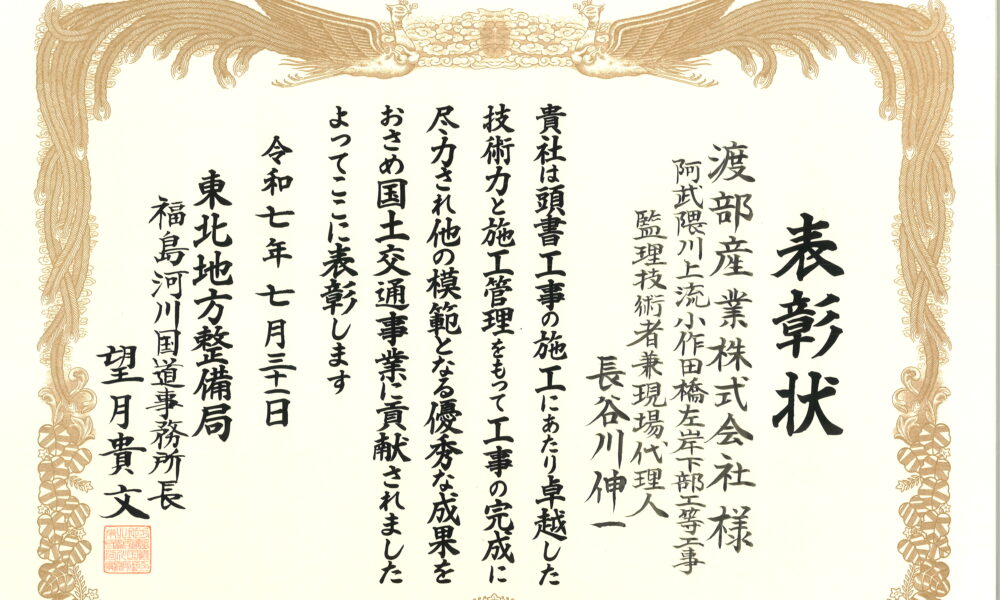 表彰状
渡部産業株式会社様
阿武隈川上流小作田橋左岸下部工等工事
監理技術者兼現場代理人
長谷川伸一
貴社は頭書工事の施工にあたり卓越した
技術力と施工管理をもって工事の完成に
尽力され他の模範となる優秀な成果を
おさめ国土交通事業に貢献されました
よってここに表彰します
令和七年七月三十一日
東北地方整備局
福島河川国道事務所長
望月貴文